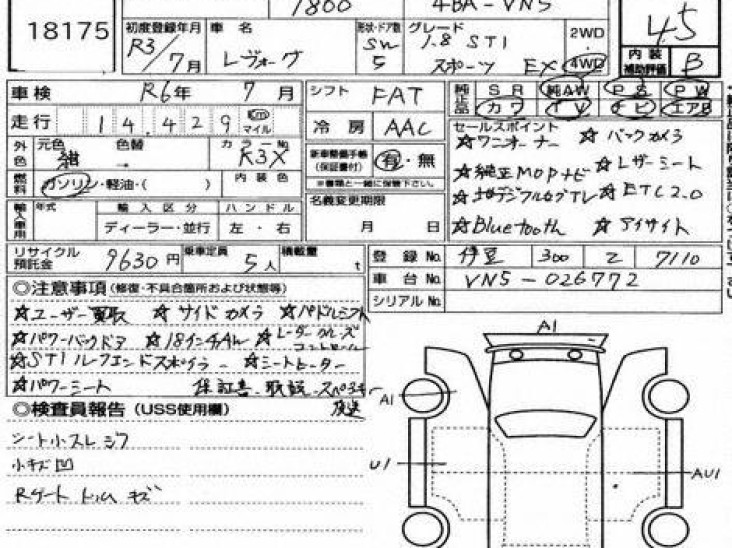 1800 4BA-VN5
18175 初度登録年月 車名 形状・ドア数 グレード 2WD 4.5
R3/7月 レヴォーグ SW 5 1.8 STI スポーツ EX 4WD 内装補助評価 B
車検 R6年 7月 シフト FAT 純正品 SR 純AW PS PW
走行 14,429 km マイル 冷房 AAC カワ TV ナビ エアB
外色 元色 紺 色替 → カラーNo K3X 新車整備手帳(保証書付) 有・無
※書類と一緒に保管下さい。
セールスポイント
☆ワンオーナー ☆バックカメラ
☆純正MOPナビ ☆レザーシート
☆地デジフルセグTV ☆ETC2.0
☆Bluetooth ☆アイサイト
燃料 ガソリン・軽油・( ) 内装色
名義変更期限 月 日
輸入車用 年式 輸入区分 ハンドル
ディーラー・並行 左・右
リサイクル預託金 9630円 乗車定員 5人 積載量 t
登録No. 伊豆 300 ス 7110
車台No. VN5-026772
シリアルNo.
◎注意事項(修復・不具合箇所および状態等)
☆ユーザー買取 ☆サイドカメラ ☆パドルシフト
☆パワーバックドア ☆18インチAW ☆レーダークルーズコントロール
☆STIルーフエンドスポイラー ☆シートヒーター
☆パワーシート 保証書、取説、スペアキー後送
◎検査員報告(USS使用欄)
シート小スレ シワ
小キズ凹
Rゲートトリム キズ
A1
A1
U1
AU1